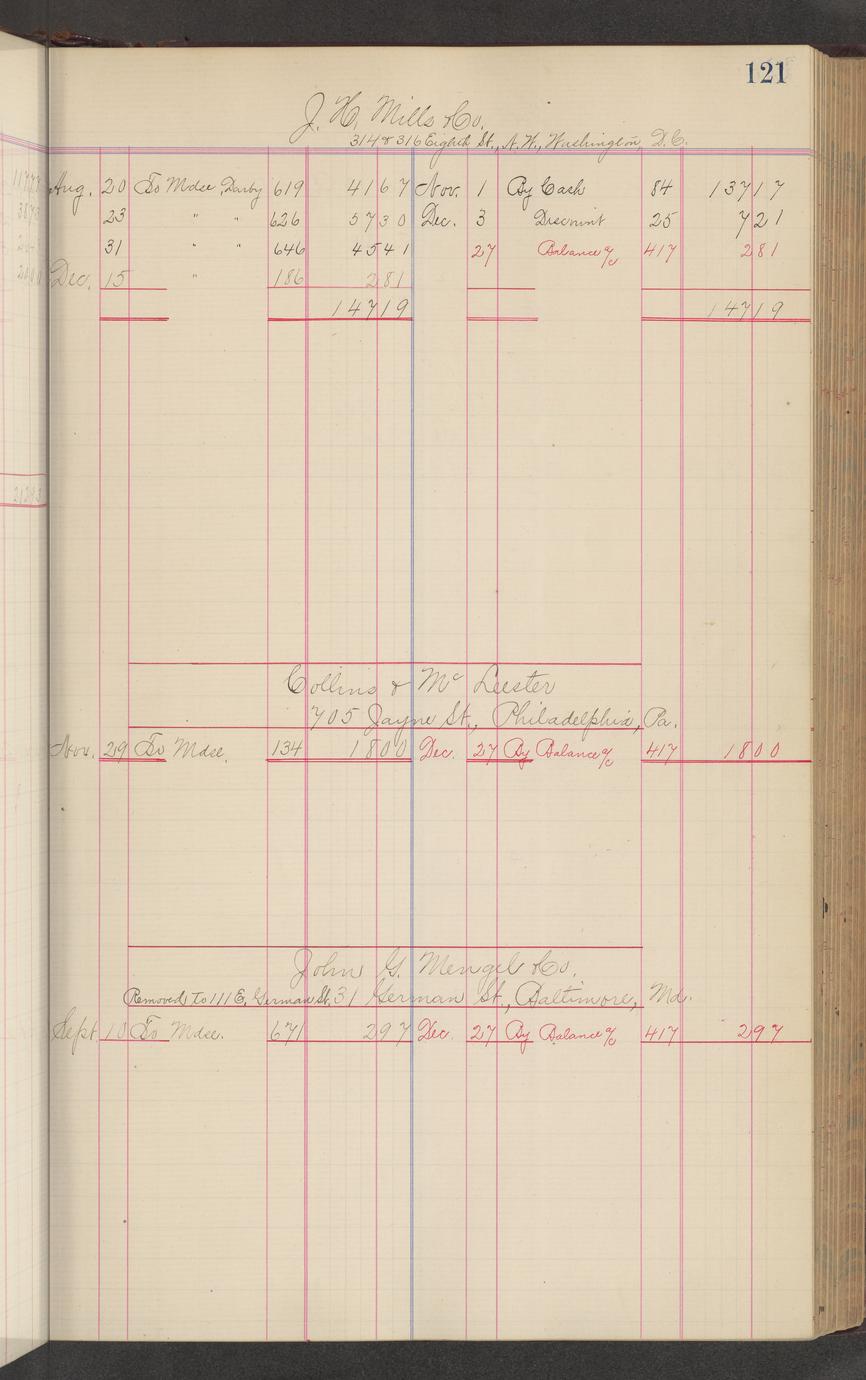 121
J. H. Mills & Co.
314 & 316 Eighth St., N. W., Washington, D. C.
Aug. 20 To Mdse. Darby 619 41 67 Nov. 1 By Cash 84 137 17
23 " " 626 57 30 Dec. 3 Discount 25 7 21
31 " " 646 45 41 27 Balance a/c 417 2 81
Dec. 15 " 186 2 81
147 19 147 19
Collins & Mc Leester
705 Jayne St., Philadelphia, Pa.
Nov. 29 To Mdse. 134 18 00 Dec. 27 By Balance a/c 417 18 00
John G. Mengel & Co.
Removed to 111 E. German St. 31 German St., Baltimore, Md.
Sept. 10 To Mdse. 671 2 97 Dec. 27 By Balance a/c 417 2 97